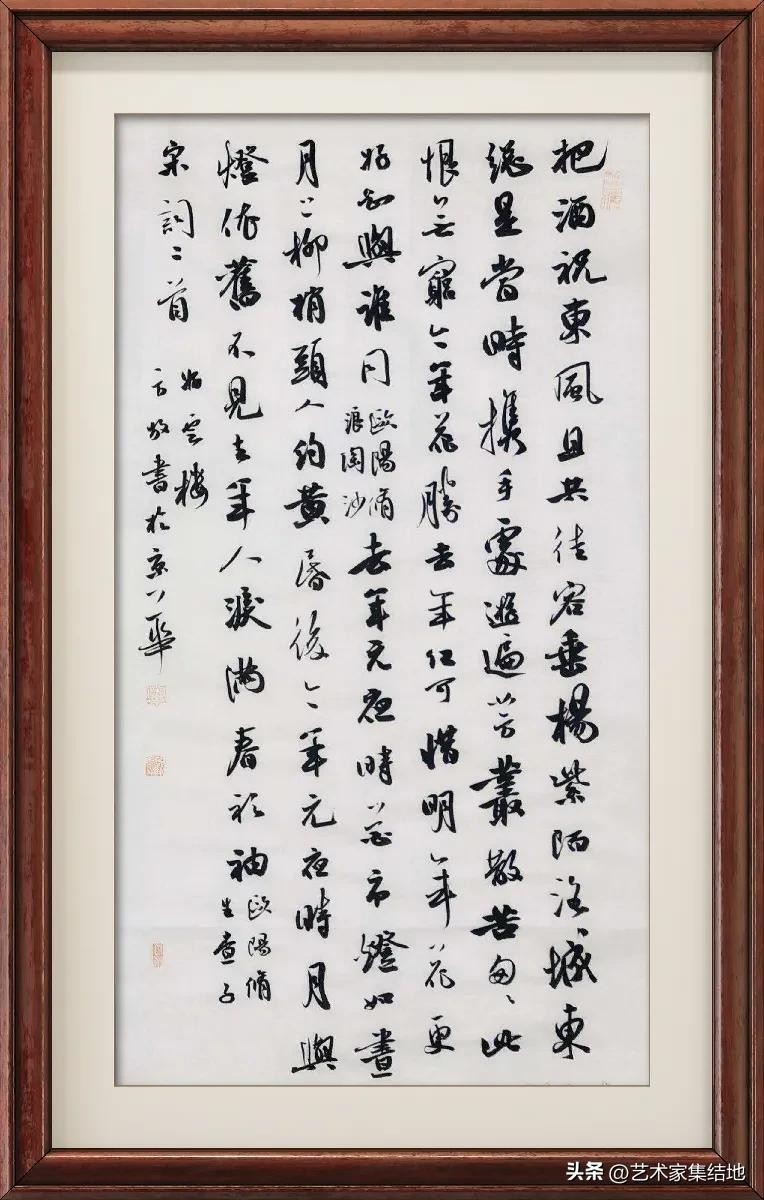 把酒祝東風且共從容垂楊紫陌洛城東
總是當時携手處遊遍芳叢散苦匆匆此
恨無窮今年花勝去年紅可惜明年花更
好知與誰同歐陽脩浪淘沙去年元夜時花市燈如晝
月上柳梢頭人約黃昏後今年元夜時月與
燈依舊不見去年人淚滿春衫袖歐陽脩生查子
宋詞二首
雲樓
方放書於京華
头条 @艺术家集结地